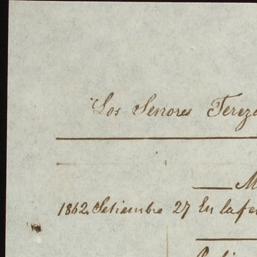 Los Senores Tereza
M
1862 Setiembre 27 En la fe